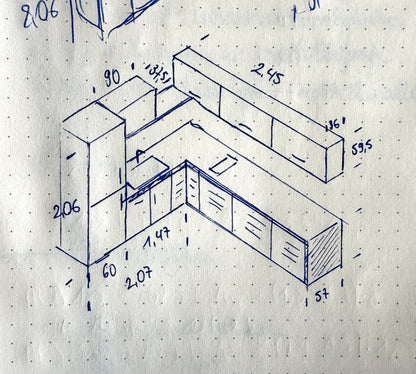 2,06
90
2,45
36
59,5
2,06
1,47
60
2,07
57